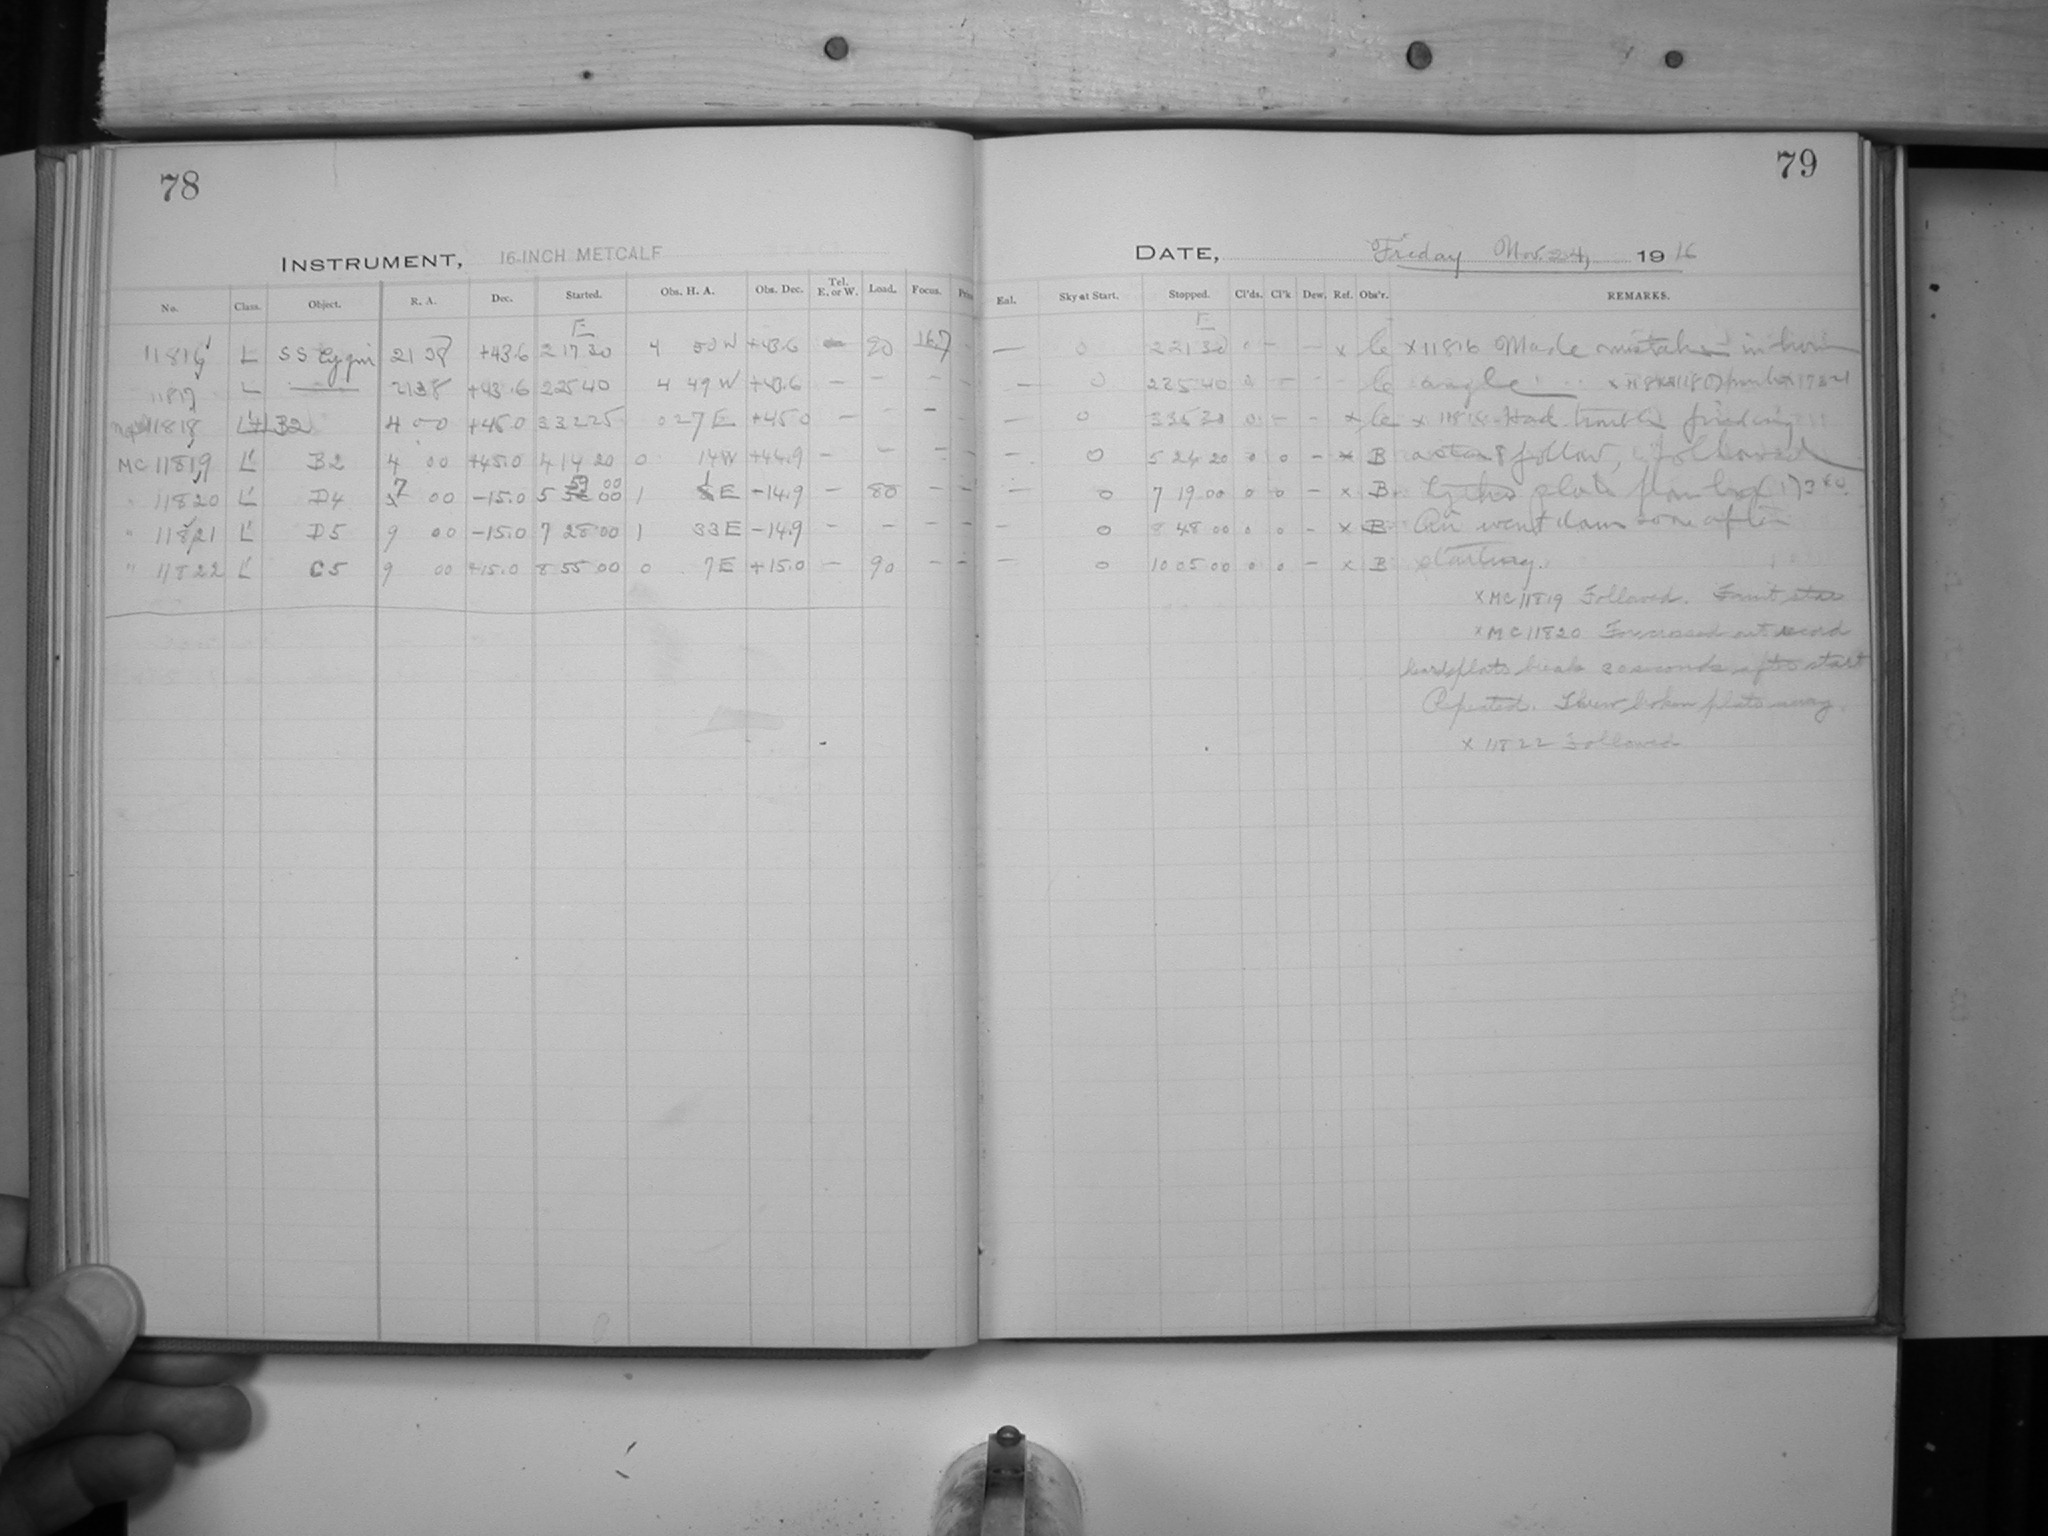 78
INSTRUMENT, 16-INCH METCALF
No. Class. Object. R. A. Dec. Started. Obs. H. A. Obs. Dec. Tel. E. or W. Load. Focus.
E
11816 L SS Cygni 21 38 +43.6 2 17 30 4 50 W +43.6 — 90 16.7
11817 L —— 21 38 +43.6 2 25 40 4 49 W +43.6 — — —
11818 L B2 4 00 +45.0 3 32 25 0 27 E +45.0 — — —
MC 11819 L' B2 4 00 +45.0 4 14 20 0 14 W +44.9 — — — —
" 11820 L' D4 7 00 −15.0 5 59 00 1 1 E −14.9 — 80 — —
" 11821 L' D5 9 00 −15.0 7 28 00 1 33 E −14.9 — — — —
" 11822 L' C5 9 00 +15.0 8 55 00 0 7 E +15.0 — 90 — —
79
DATE, Friday Nov. 24, 1916
Enl. Sky at Start. Stopped. Cl'ds. Cl'k Dew. Ref. Obs'r. REMARKS.
E
— 0 2 21 30 0 — — x le x 11816 Made mistake in hour
— 0 2 25 40 0 — — le angle
— 0 3 35 30 0 — — x le x 11818 Had trouble finding
— 0 5 24 20 0 0 — x B a star to follow, followed
— 0 7 19 00 0 0 — x B plate from box 17340
0 8 48 00 0 0 — x B went down some after
— 0 10 05 00 0 0 — x B starting.
x MC 11819 Followed. Faint star
x MC 11820 For crossed out record
heard plate break 20 seconds after start
Repeated. Threw broken plate away.
x 11822 Followed